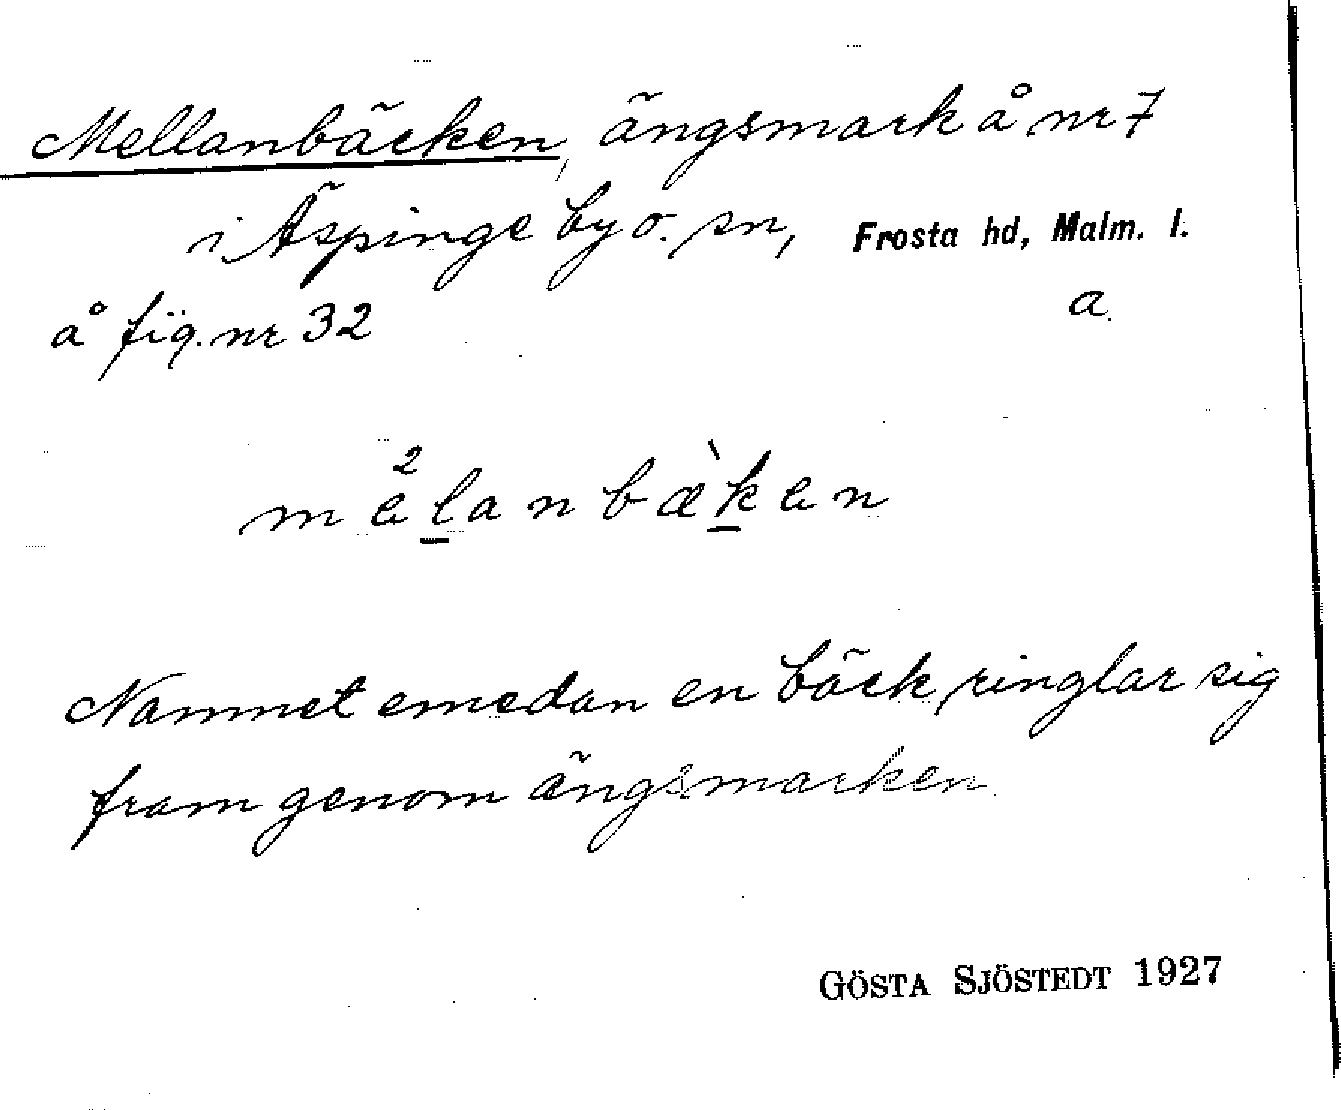 Mellanbäcken, ängsmark å nr 7
i Äspinge by o. sn, Frosta hd, Malm. l.
å fig. nr 32 a.
me²lanbæ̀ken
Namnet emedan en bäck ringlar sig
fram genom ängsmarken.
GÖSTA SJÖSTEDT 1927